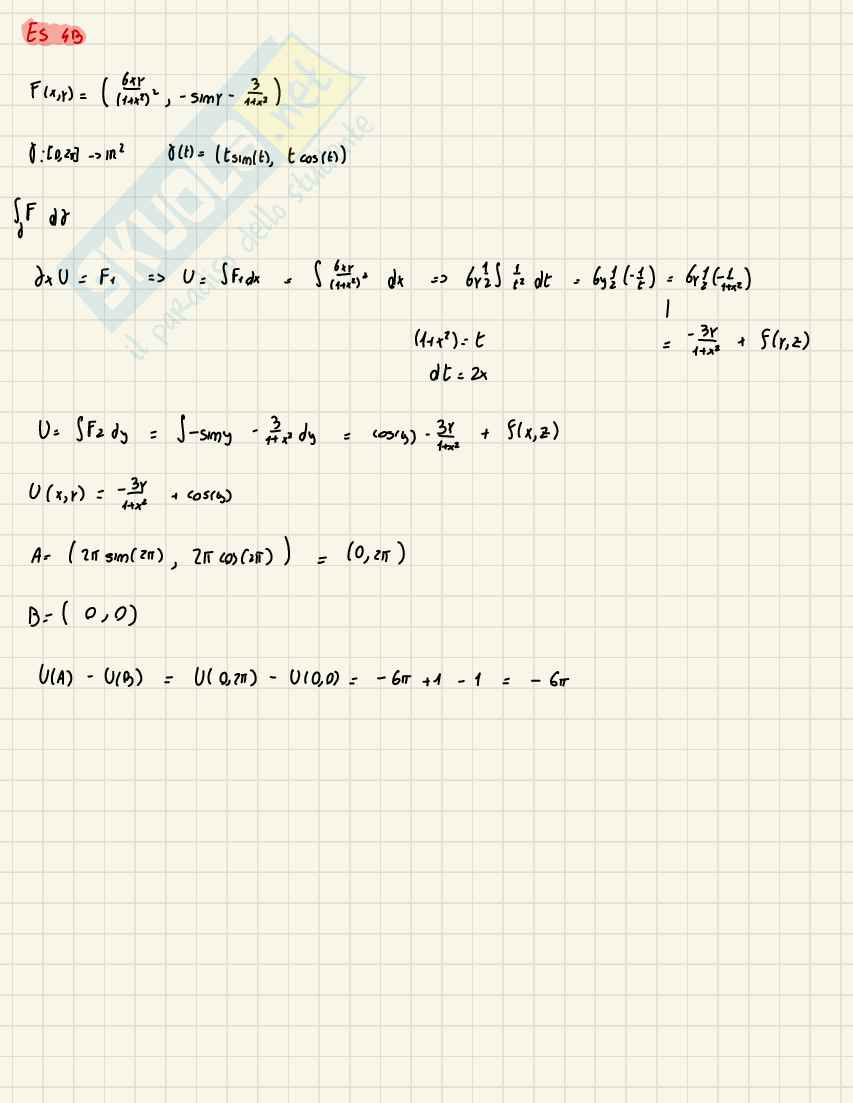 ES 4B
F(x,y) = ( 6xy/(1+x²)² , - siny - 3/(1+x²) )
γ:[0,2π] -> ℝ² γ(t) = (t sin(t), t cos(t))
∫γ F dγ
∂x U = F₁ => U = ∫F₁ dx = ∫ 6xy/(1+x²)² dx => 6y 1/2 ∫ 1/t² dt = 6y 1/2 (-1/t) = 6y 1/2 (-1/(1+x²))
(1+x²) = t = -3y/(1+x²) + f(y,z)
dt = 2x
U = ∫F2 dy = ∫-siny - 3/(1+x²) dy = cos(y) - 3y/(1+x²) + f(x,z)
U(x,y) = -3y/(1+x²) + cos(y)
A = (2π sin(2π), 2π cos(2π)) = (0, 2π)
B = (0,0)
U(A) - U(B) = U(0,2π) - U(0,0) = -6π + 1 - 1 = - 6π
SKUOLA.net
il paradiso dello studente